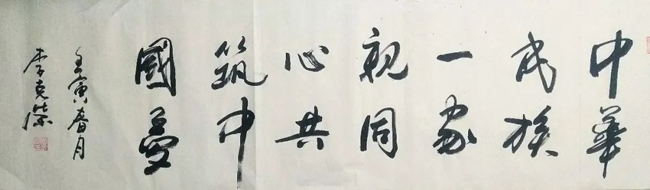 中華
民族
一家
親同
心共
筑中
國夢
壬寅春月
李克